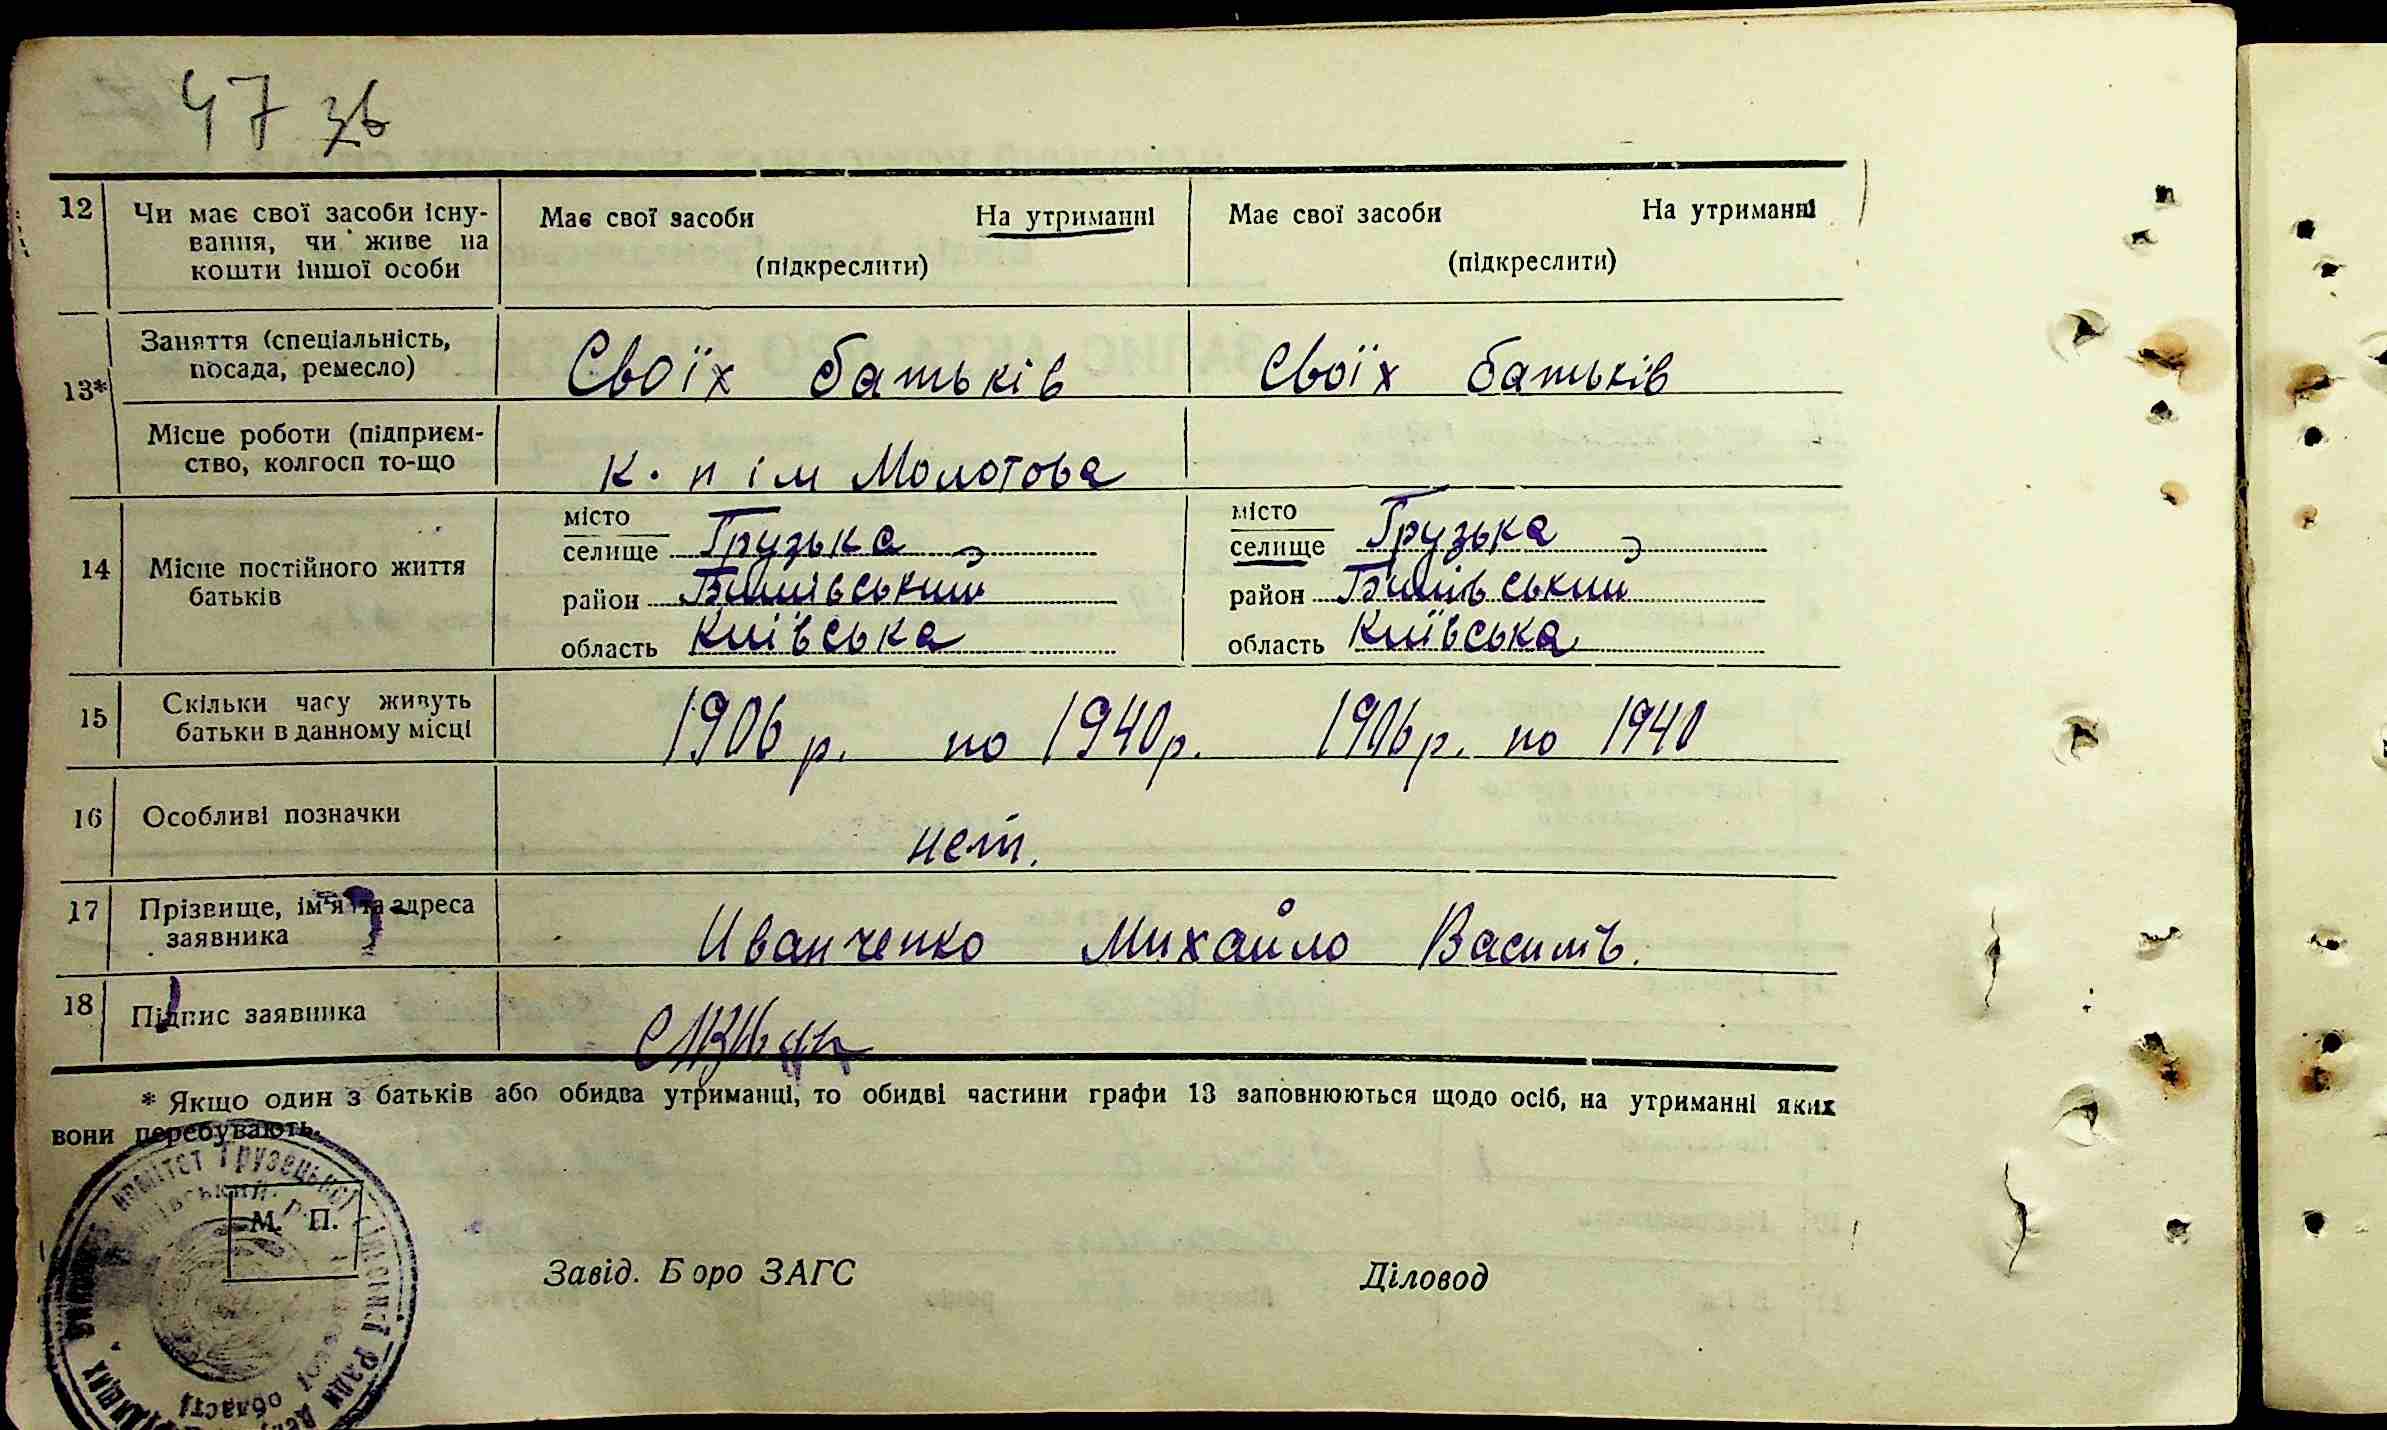 47 зв
12 Чи має свої засоби існу- Має свої засоби На утриманні Має свої засоби На утриманні
вання, чи живе на
кошти іншої особи (підкреслити) (підкреслити)
13* Заняття (спеціальність,
посада, ремесло) Своїх батьків Своїх батьків
Місце роботи (підприєм-
ство, колгосп то-що к. п ім Молотова
14 Місце постійного життя
батьків
місто
селище Грузька
район Бишівський
область Київська
місто
селище Грузька
район Бишівський
область Київська
15 Скільки часу живуть
батьки в данному місці 1906 р. по 1940 р. 1906 р. по 1940
16 Особливі позначки нет.
17 Прізвище, ім'я та адреса
заявника Иванченко Михайло Василь.
18 Підпис заявника
* Якщо один з батьків або обидва утриманці, то обидві частини графи 13 заповнюються щодо осіб, на утриманні яких
вони перебувають.
комітет Грузецької сільської Ради
області
М. П.
Завід. Бюро ЗАГС Діловод